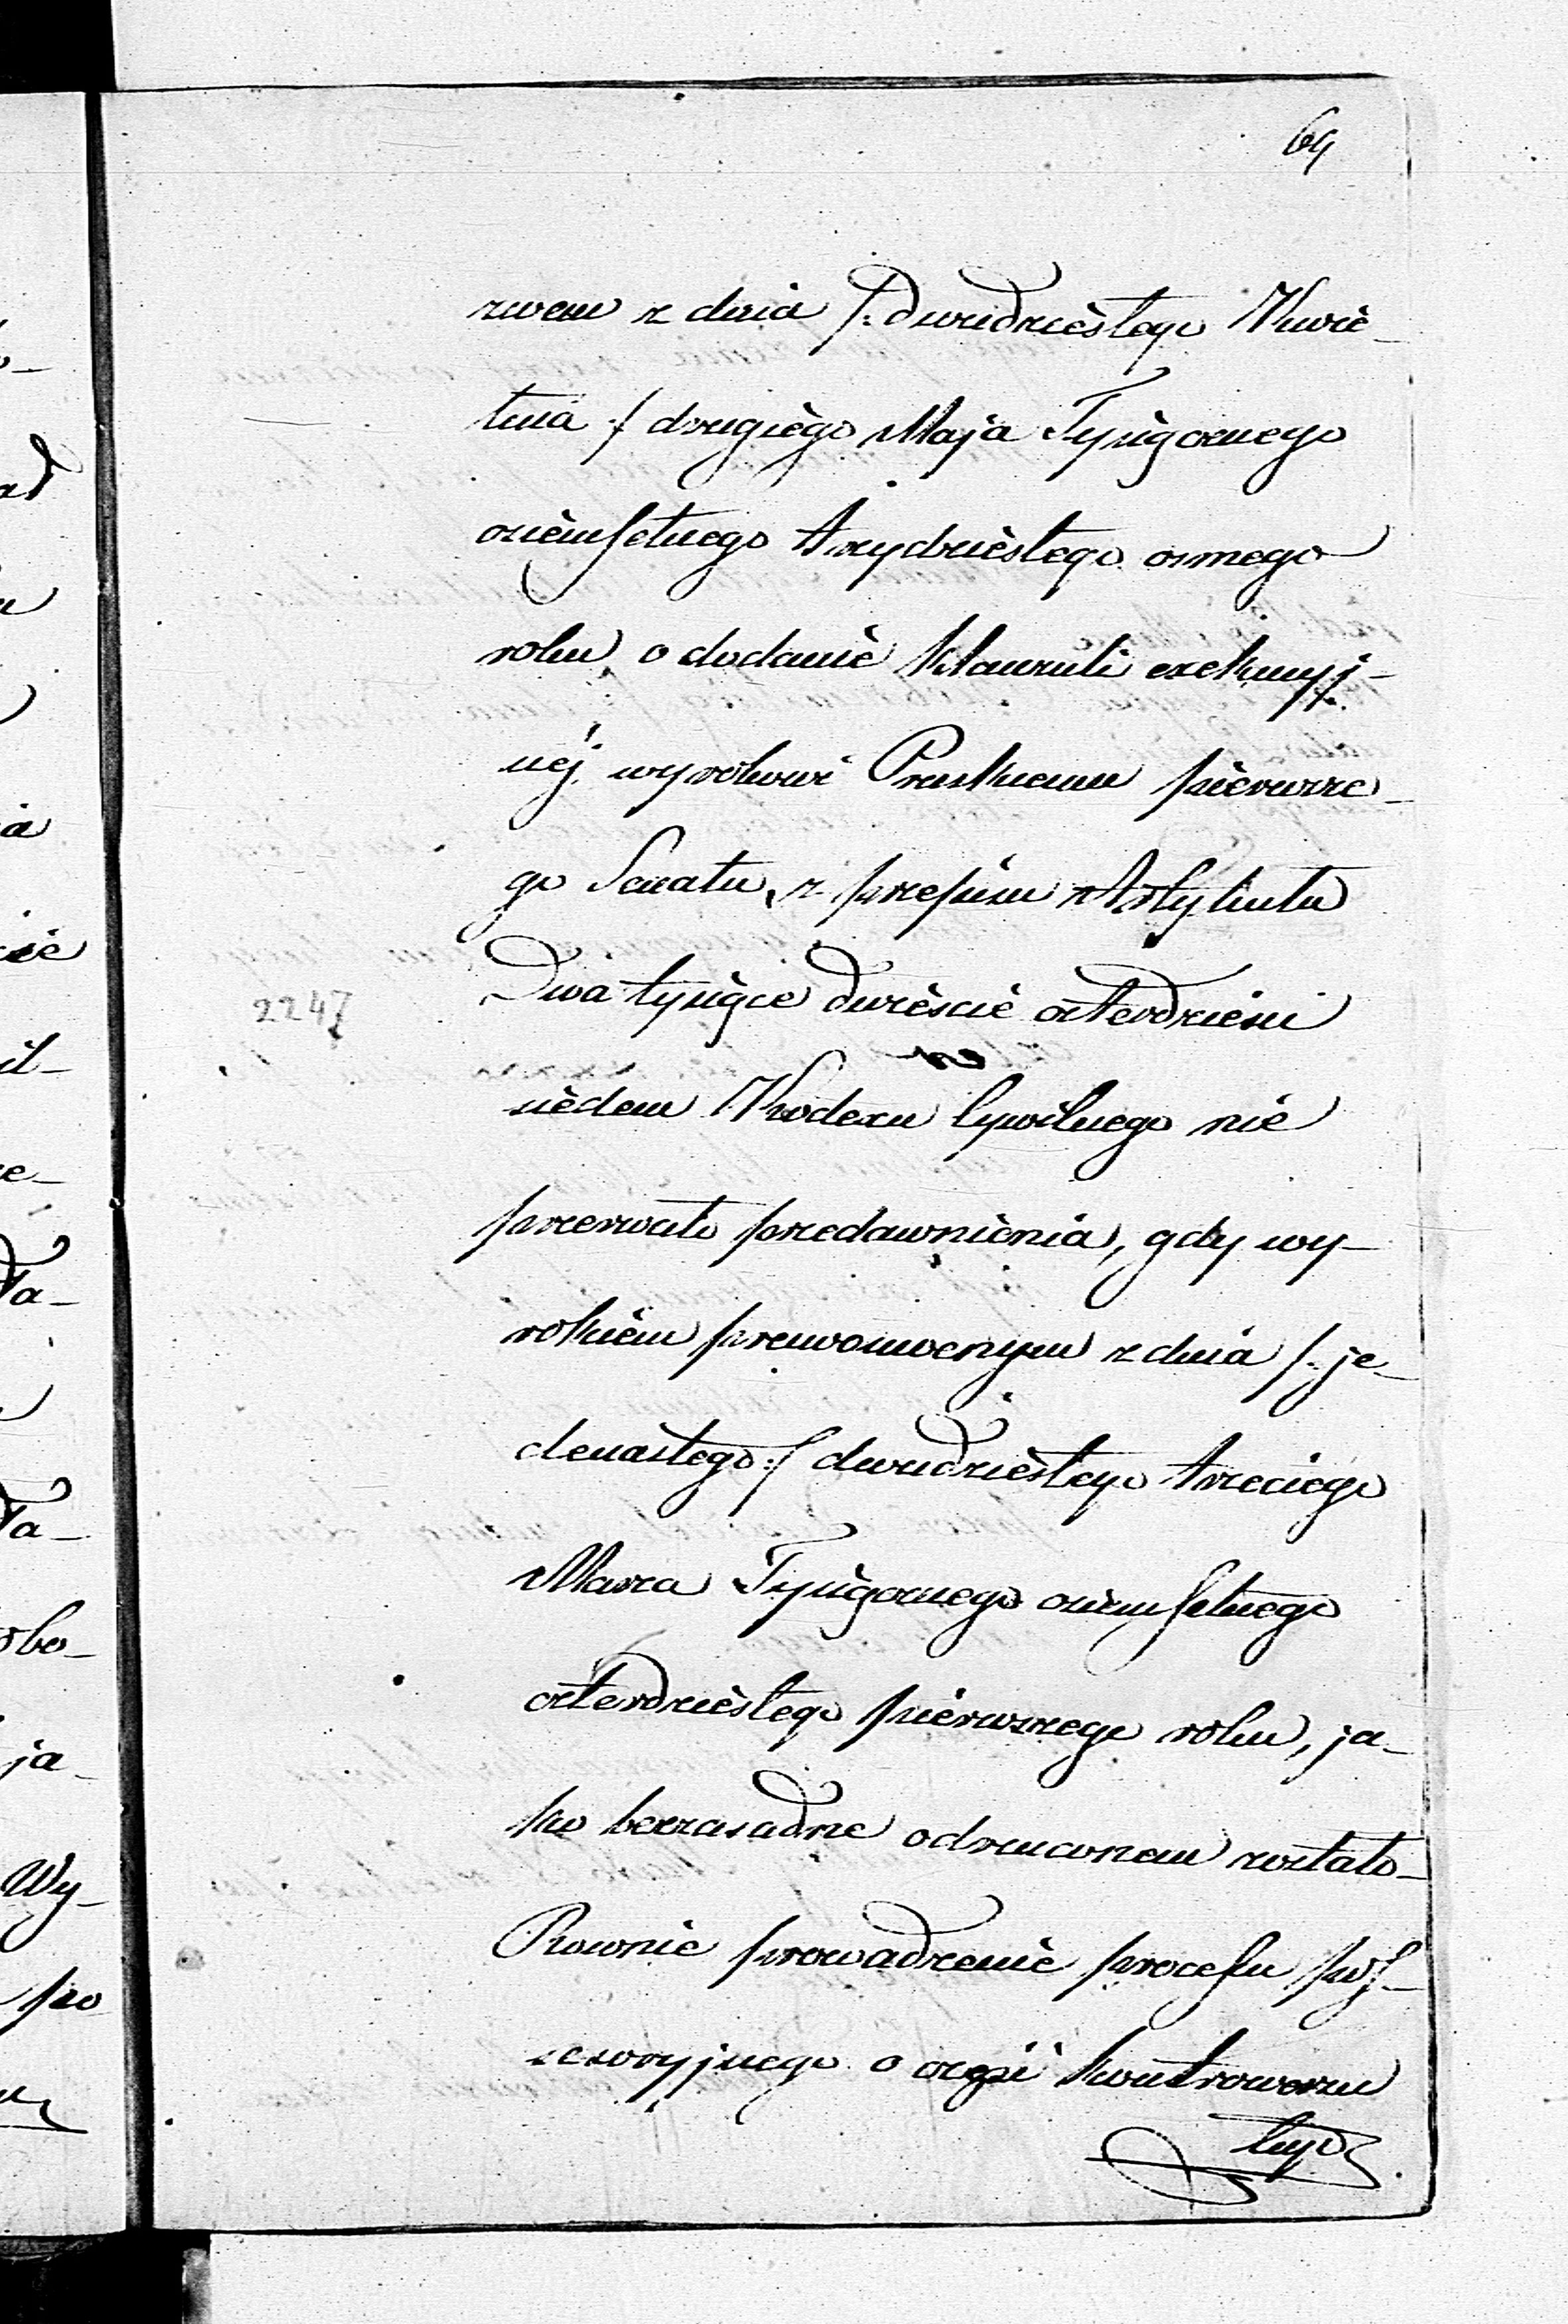 64
zwem z dnia /: dwudziestego Kwie-
tnia :/ drugiego Maja Tysiącznego
ośiemsetnego trzydziestego osmego
roku, o dodanie klauzuli exekucyj-
nej wyrokowi Pruskiemu pierwsze-
go Senatu, z przepisu Artykułu
Dwa tysiące dwieście czterdzieści
2247
siedem Kodexu Cywilnego nie
przerwało przedawnienia, gdy wy-
rokiem prawomocnym z dnia /: je-
denastego :/ dwudziestego trzeciego
Marca Tysiącznego ośiemsetnego
czterdziestego pierwszego roku, ja-
ko bezzasadne odrzuconem zostało_
Rownie prowadzenie processu pos-
sessoryjnego o części kontrower­su
tych
o-
ad
ia
cie
il-
ie-
Ta-
Ta-
obo-
ja-
Wy-
po